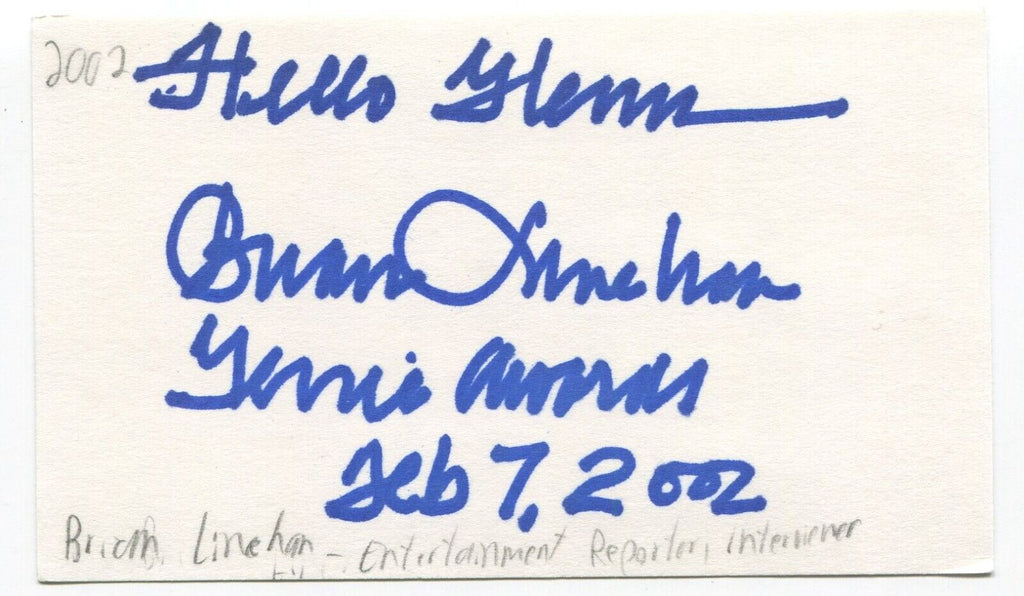 2002 Hello Glenn
Brian Linehan
Gennie Awards
Feb 7, 2002
Brian Linehan - Entertainment Reporter, interviewer